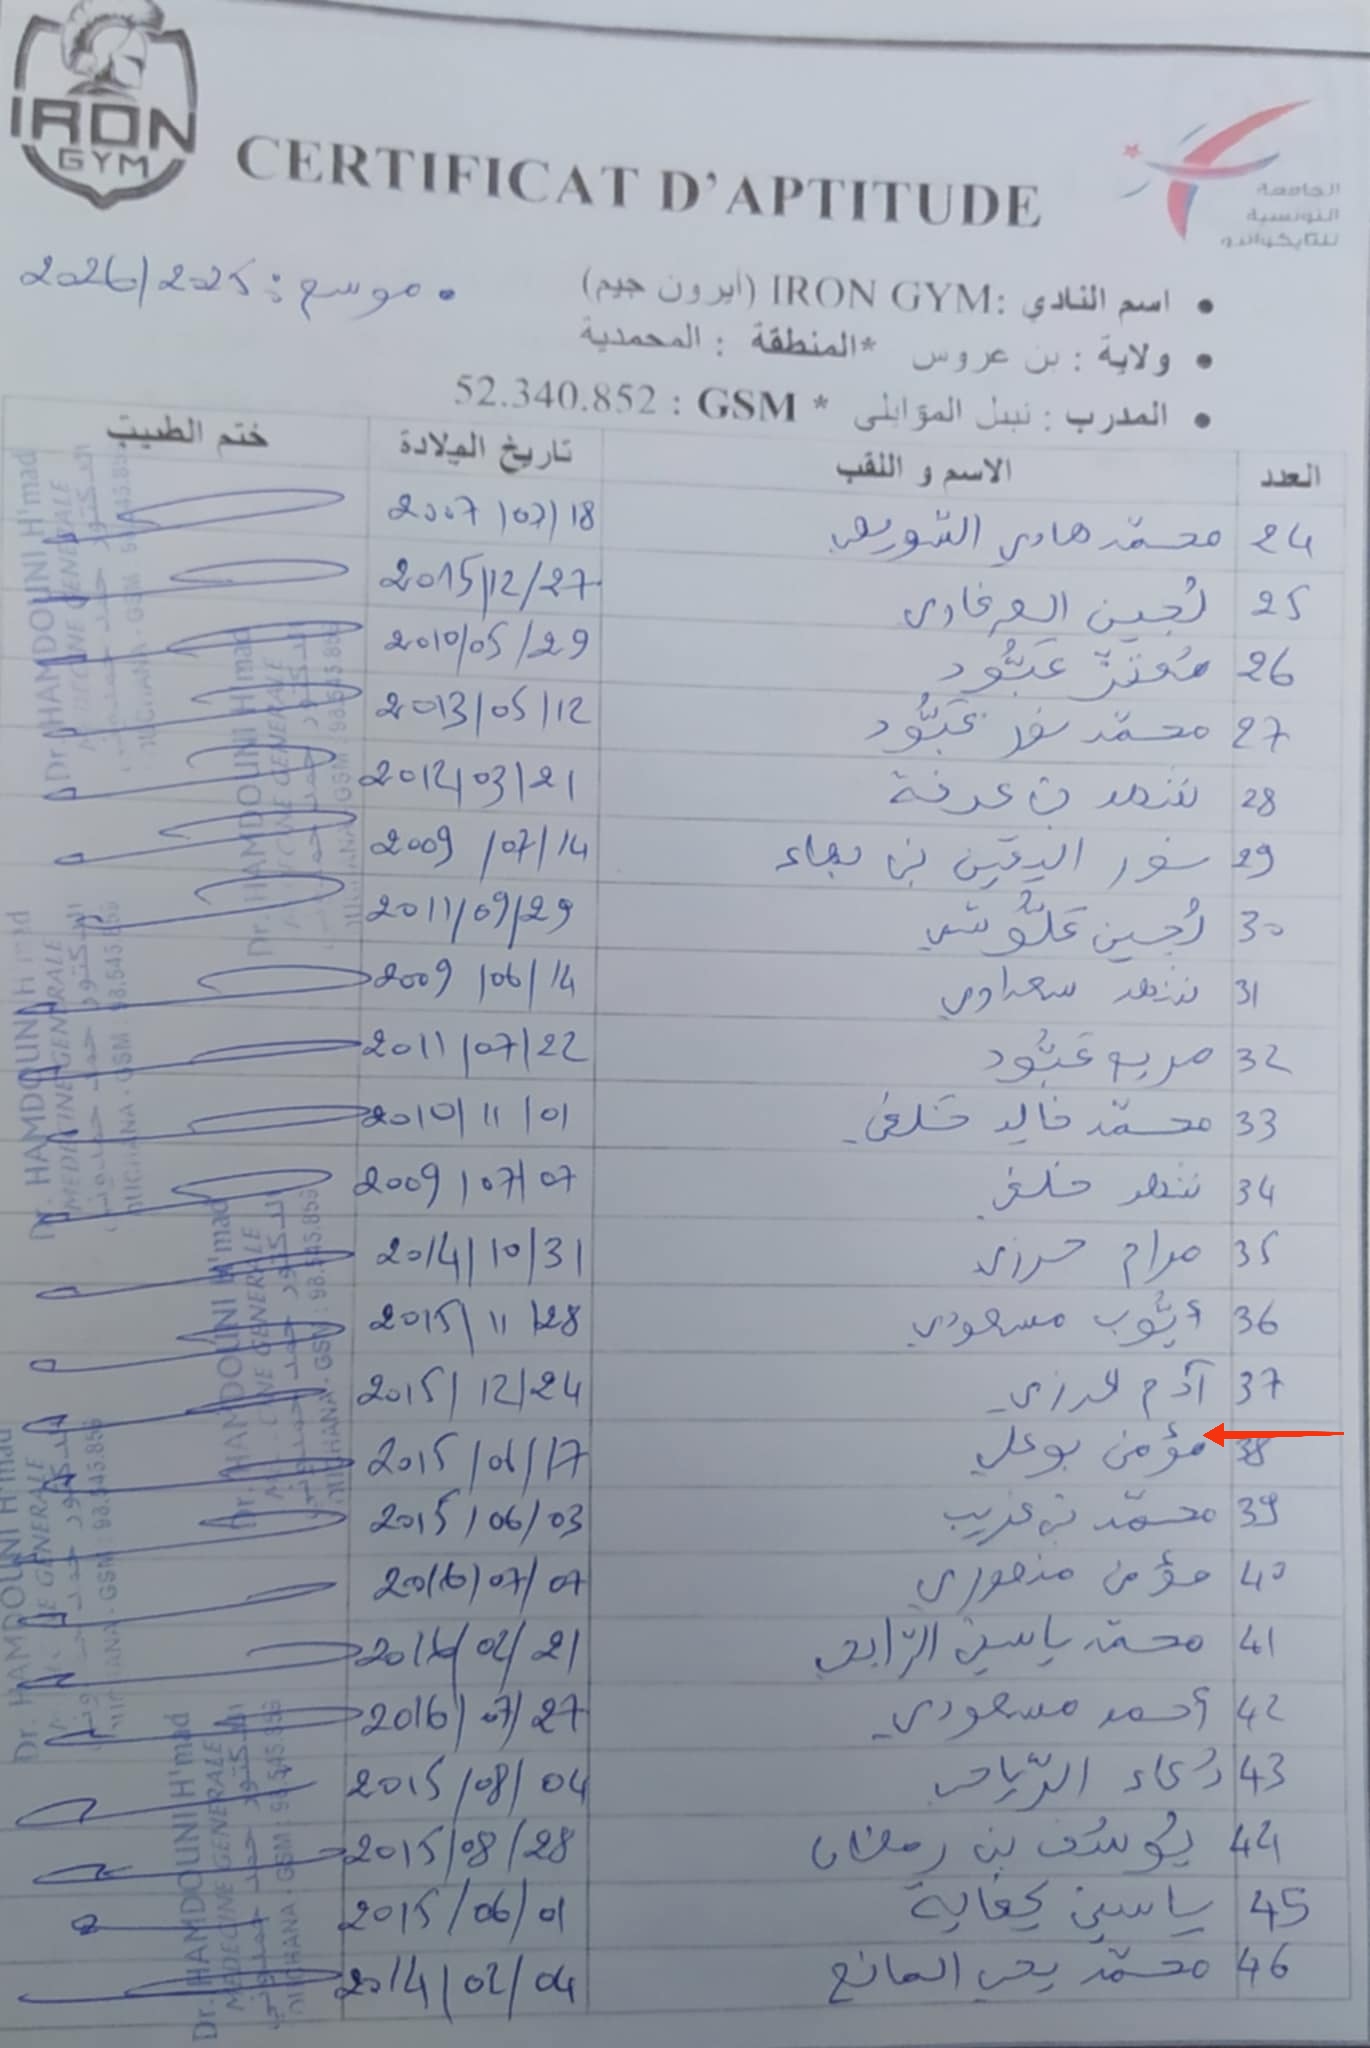 IRON
GYM
CERTIFICAT D'APTITUDE
الجامعة
التونسية
للتايكواندو
• موسم : 2025/2026
• اسم النادي :IRON GYM (أيرون جيم)
• ولاية : بن عروس *المنطقة : المحمدية
• المدرب : نبيل المؤابلي * GSM : 52.340.852
العدد الاسم و اللقب تاريخ الولادة ختم الطبيب
24 محمّد هادي الشوريبي 2007/07/18
25 لُجين العرفاوي 2015/12/27
26 مُعتز عَبُّود 2010/05/29
27 محمّد نور عَبُّود 2013/05/12
28 شهد بن عرفة 2012/03/21
29 نور اليقين بن بهاء 2009/07/14
30 لُجين عَلُّوشي 2011/09/29
31 شهد سعداوي 2009/06/14
32 مريم عَبُّود 2011/07/22
33 محمّد خالد خلفي 2010/11/01
34 شهد خلفي 2009/07/07
35 مرام حرزي 2014/10/31
36 أيّوب مسعودي 2015/11/28
37 آدم لحرزي 2015/12/24
38 مؤمن بوعلي 2015/06/17
39 محمّد بن غريب 2015/06/03
40 مؤمن منصوري 2016/07/07
41 محمّد ياسين الرّابحي 2016/02/21
42 أحمد مسعودي 2016/07/27
43 دُعاء الرّياحي 2015/08/04
44 يُوسُف بن رمضان 2015/08/28
45 ياسين كفاية 2015/06/01
46 محمّد يحي المانع 2014/02/04
Dr. HAMDOUNI H'mad
MEDECINE GENERALE
الدكتور حمد حمدوني
GSM : 98.545.856